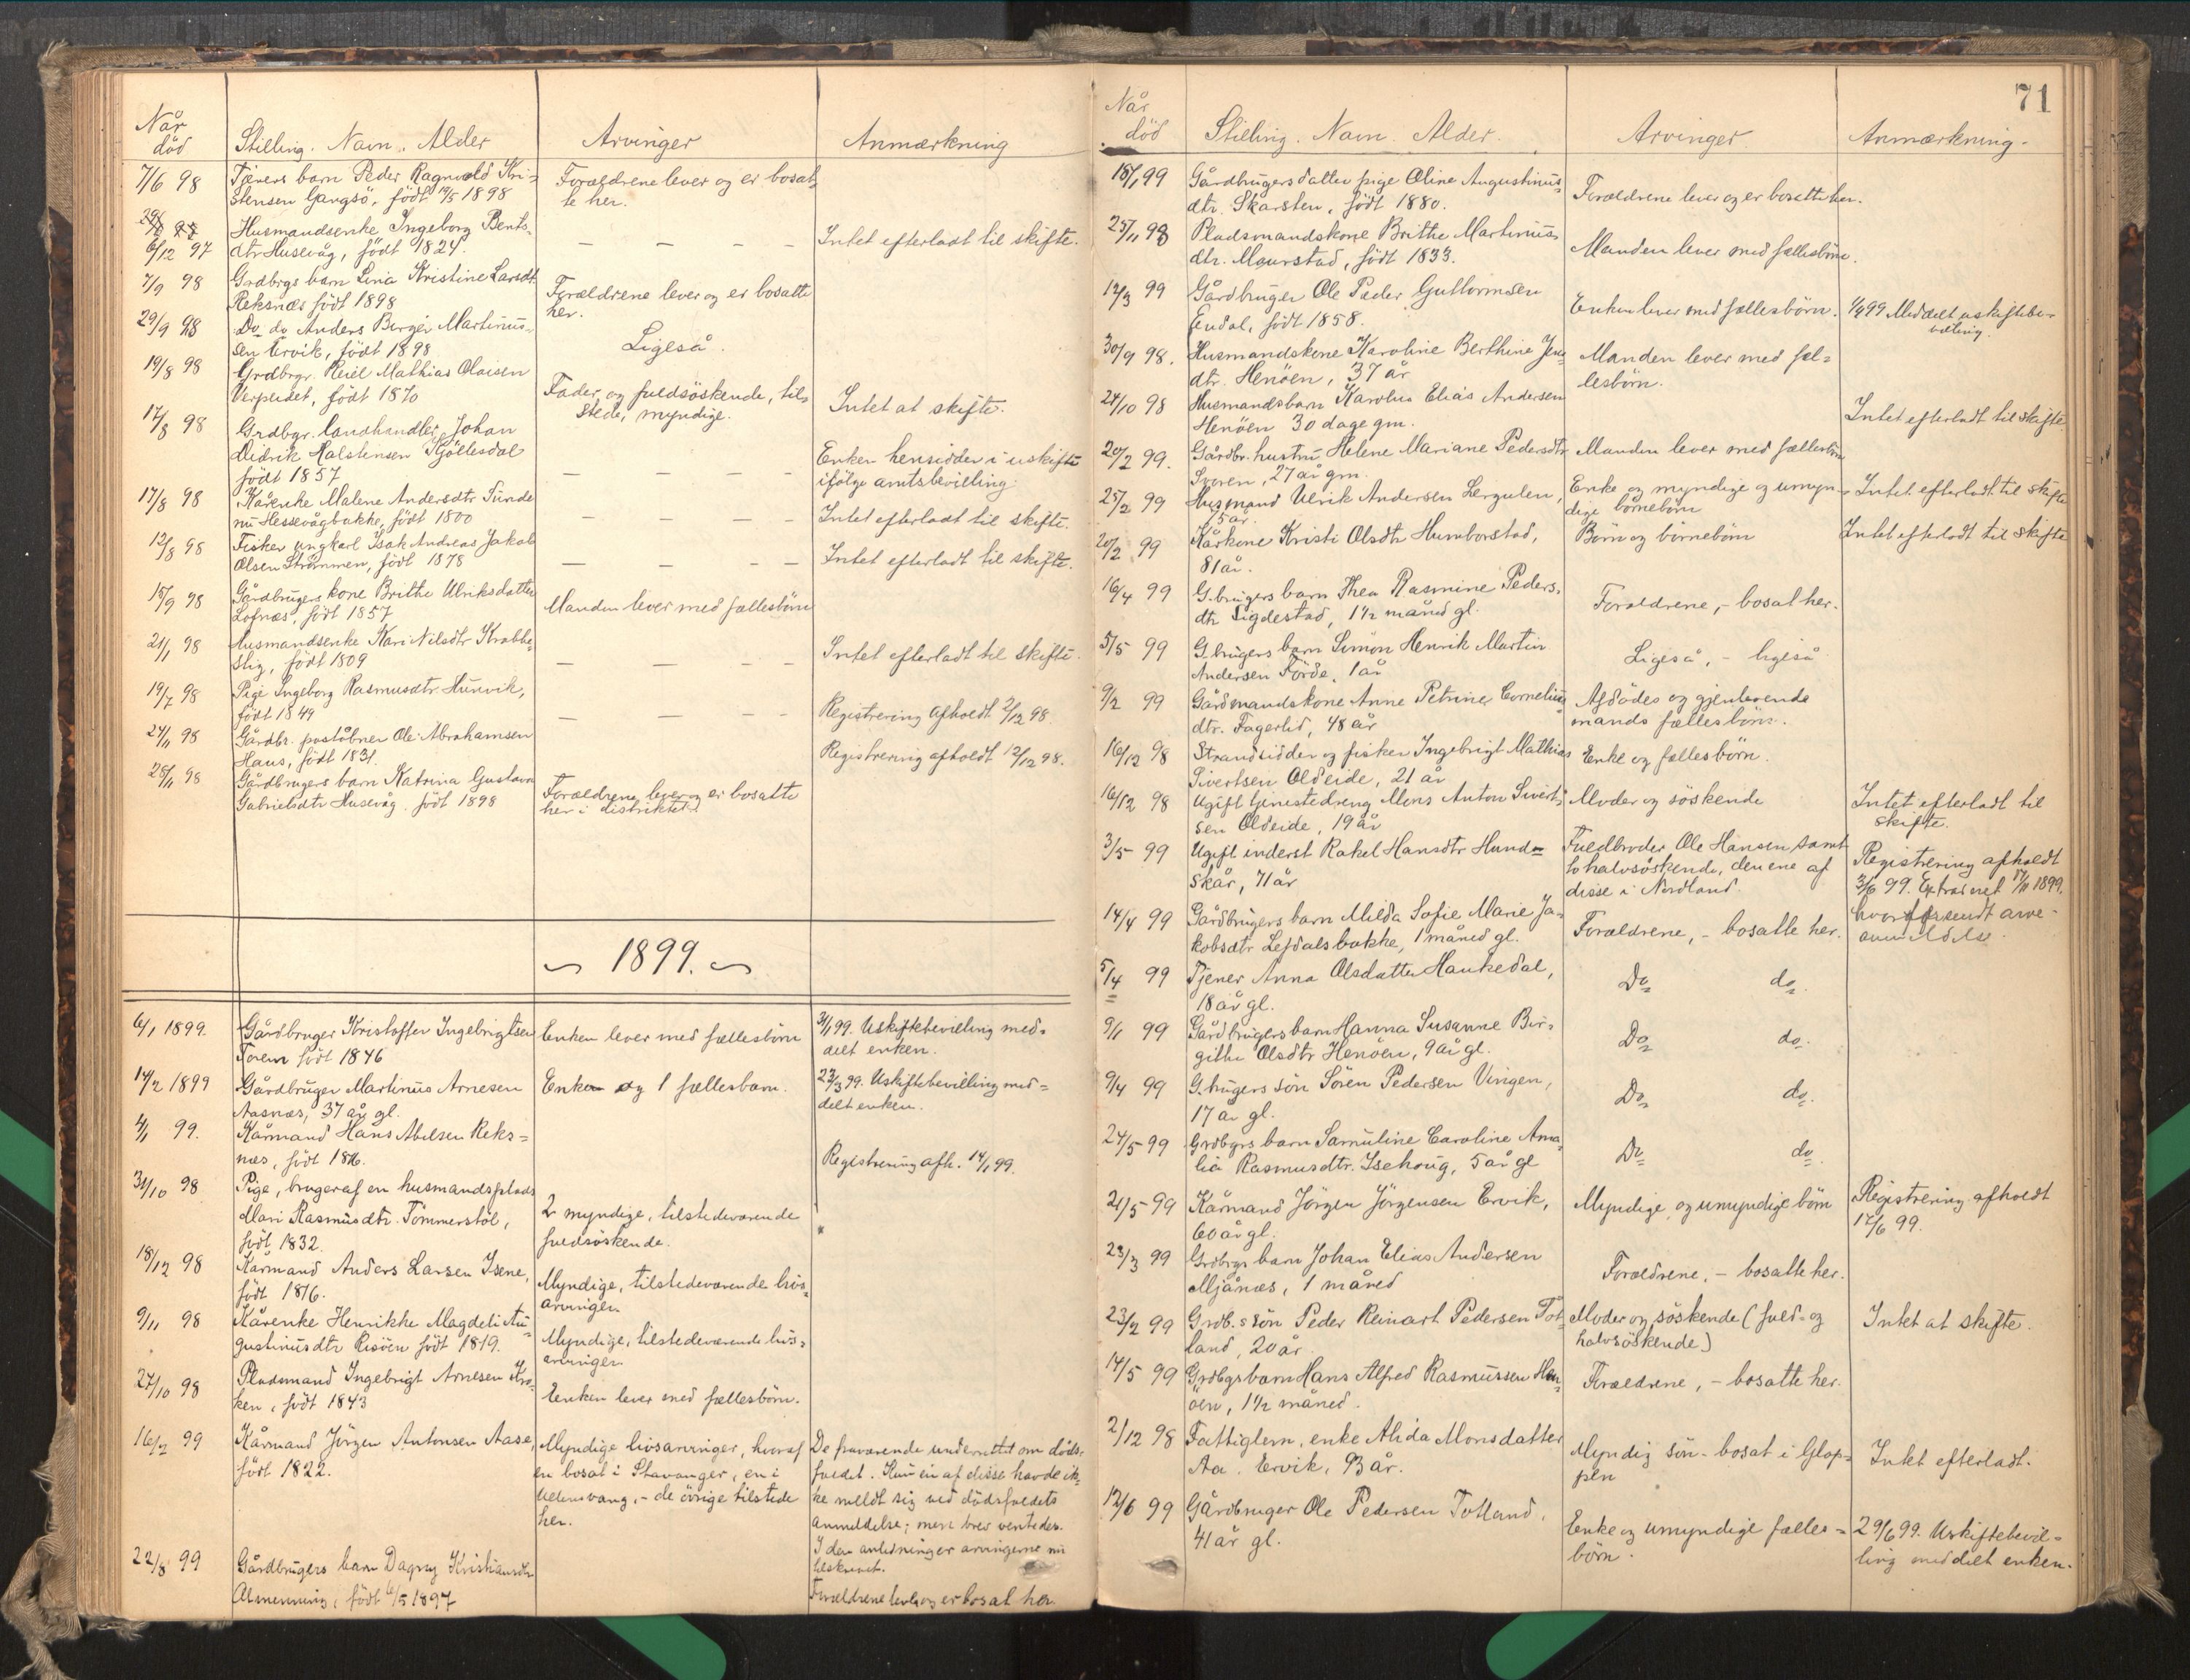 Når
död
Stilling. Navn. Alder
Arvinger
Anmærkning
7/6 98
Tjeners barn Peder Ragnvald Kri-
stensen Gangsö, födt 14/5 1898
Forældrene lever og er bosat-
te her.
6/12 97
Husmandsenke Ingeborg Bents-
dtr Husevåg, födt 1824.
— — — —
Intet efterladt til skifte.
7/9 98
Grdbrgs barn Lina Kristine Larsdt.
Reksnæs födt 1898
Forældrene lever og er bosatte
her.
29/9 98
Do do Anders Berger Martinus-
sen Ervik, födt 1898
Ligeså.
19/8 98
Grdbrgr. Reiel Mathias Olaisen
Verpeidet, födt 1870
Fader og fuldsöskende, til-
stede, myndige.
Intet at skifte.
17/8 98
Grdbgr. landhandler Johan
Didrik Halstensen Kjöllesdal
födt 1857
— — — —
Enken hensidder i uskifte
ifölge amtsbevilling.
17/8 98
Kårenke Malene Andersdtr Tunde
nu Hessevågbakke, födt 1800
— — — —
Intet efterladt til skifte.
12/8 98
Fisker ungkarl Isak Andreas Jakob
Olsen Strömmen, födt 1878
— — — —
Intet efterladt til skifte.
15/9 98
Gårdbrugerskone Brithe Ulriksdatter
Lofnæs, födt 1857
Manden lever med fællesbörn
21/1 98
Husmandsenke Kari Nilsdtr Krabbe-
stig, födt 1809
— — — —
Intet efterladt til skifte.
19/7 98
Pige Ingeborg Rasmusdtr. Hunvik,
födt 1849
— — — —
Registrering afholdt 2/12 98.
24/11 98
Gårdbr. poståbner Ole Abrahamsen
Haus, födt 1831.
Registrering afholdt 12/12 98.
25/11 98
Gårdbrugers barn Katrina Gustava
Gabrielsdtr Husevåg. födt 1898
Forældrene lever og er bosatte
her i distriktet.
1899.
6/1 1899.
Gårdbruger Kristoffer Ingebrigtsen
Torem födt 1846
Enken lever med fællesbörn
31/1 99. Uskiftebevilling med-
delt enken.
14/2 1899
Gårdbruger Martinus Arnesen
Aasnæs, 37 år gl.
Enken og 1 fællesbarn.
23/3 99. Uskiftebevilling med-
delt enken.
4/1 99.
Kårmand Hans Abelsen Reks-
næs, födt 1816.
Registrering afh. 14/1 99.
31/10 98
Pige, bruger af en husmandsplads
Mari Rasmusdtr. Tömmerstöl,
födt 1832.
2 myndige, tilstedeværende
fuldsöskende.
18/12 98
Kårmand Anders Larsen Isene,
födt 1816.
Myndige, tilstedeværende livs-
arvinger.
9/11 98
Kårenke Henrikke Magdeli Au-
gustinusdtr Risöen födt 1819.
Myndige, tilstedeværende livs-
arvinger.
27/10 98
Pladsmand Ingebrigt Arnesen Kro-
ken, födt 1843
Enken lever med fællesbörn.
16/2 99
Kårmand Jörgen Antonsen Aase,
födt 1822.
Myndige livsarvinger, hvoraf
en bosat i Stavanger, en i
Ullensvang, - de övrige tilstede
her.
De fraværende underrettet om döds-
faldet. Kun en af disse havde ik-
ke meldt sig ved dödsfaldets
anmeldelse; men brev ventedes.
I den anledning er arvingerne nu
tilskrevet.
22/8 99
Gårdbrugers barn Dagny Kristiansdtr
Almenning, födt 6/5 1897
Forældrene lever og er bosat her.
71
Når
död
Stilling. Navn. Alder.
Arvinger.
Anmærkning.
18/1 99
Gårdbrugersdatter pige Oline Augustinus-
dtr. Skarsten, födt 1880.
Forældrene lever og er bosatte her.
25/11 98
Pladsmandskone Brithe Martinus-
dtr. Maurstad, födt 1833.
Manden lever med fællesbörn.
12/3 99
Gårdbruger Ole Peder Guttormsen
Endal, födt 1858.
Enken lever med fællesbörn.
99 Meddelt uskiftebe-
villing.
30/9 98.
Husmandskone Karoline Berthine Jens-
dtr. Henöen, 37 år
Manden lever med fæl-
lesbörn.
24/10 98
Husmandsbarn Karolus Elias Andersen
Henöen 30 dage gm.
Intet efterladt til skifte.
20/2 99.
Gårdbr. hustru Helene Mariane Pedersdtr
27 år gm.
Manden lever med fællesbörn
25/2 99
Husmand Ulrik Andersen Lergulen,
75 år.
Enke og myndige og umyn-
dige börnebörn
Intet efterladt til skifte
20/2 99
Kårkone Kristi Olsdtr Humborstad,
81 år.
Börn og börnebörn
Intet efterladt til skifte
16/4 99
G.brugers barn Thea Rasmine Peders-
dtr Sigdestad, 1 1/2 måned gl.
Forældrene, - bosat her.
5/5 99
G.brugers barn Simon Henrik Martin
Andersen Förde, 1 år
Ligeså, - ligeså
9/2 99
Gårdmandskone Anne Petrine Cornelius-
dtr. Fagerlid, 48 år
Afdödes og gjenlevende
mands fællesbörn.
16/12 98
Strandsidder og fisker Ingebrigt Mathias
Sivertsen Oldeide, 21 år
Enke og fællesbörn.
16/12 98
Ugift tjenestedreng Mons Anton Sivert-
sen Oldeide, 19 år
Moder og söskende
Intet efterladt til
skifte.
3/5 99
Ugift inderst Rakel Hansdtr Hund-
skår, 71 år
Fuldbroder Ole Hansen samt
to halvsöskende, den ene af
disse i Nordland.
Registrering afholdt
3/6 99. Extraheret 17/11 1899.
arve-
anmeldelse.
14/4 99
Gårdbrugers barn Milda Sofie Marie Ja-
kobsdtr Lefdalsbakke, 1 måned gl.
Forældrene, - bosatte her.
5/4 99
Tjener Anna Olsdatter Haukedal,
18 år gl.
Do do.
9/1 99
Gårdbrugersbarn Hanna Susanne Bir-
githe Olsdtr Henöen, 9 år gl.
Do do.
9/4 99
G.brugers sön Sören Pedersen Vingen,
17 år gl.
Do do.
24/5 99
Grdbgrs barn Samuline Caroline Ama-
lia Rasmusdtr. Isehoug, 5 år gl
Do do.
21/5 99
Kårmand Jörgen Jörgensen Ervik,
60 år gl.
Myndige og umyndige börn
Registrering afholdt
17/6 99.
23/3 99
Grdbrgs barn Johan Elias Andersen
Mjånæs, 1 måned
Forældrene, - bosatte her.
23/2 99
Grdb.s sön Peder Reinart Pedersen Tot-
land, 20 år
Moder og söskende (fuld- og
halvsöskende)
Intet at skifte.
14/5 99
Grdbgsbarn Hans Alfred Rasmussen Hen-
öen, 1 1/2 måned.
Forældrene, - bosatte her.
2/12 98
Fattiglem, enke Alida Monsdatter
Aa. Ervik, 93 år.
Myndig sön - bosat i Glop-
pen
Intet efterladt.
12/6 99
Gårdbruger Ole Pedersen Totland,
41 år gl.
Enke og umyndige fælles-
börn.
29/6 99. Uskiftebevil-
ling meddelt enken.